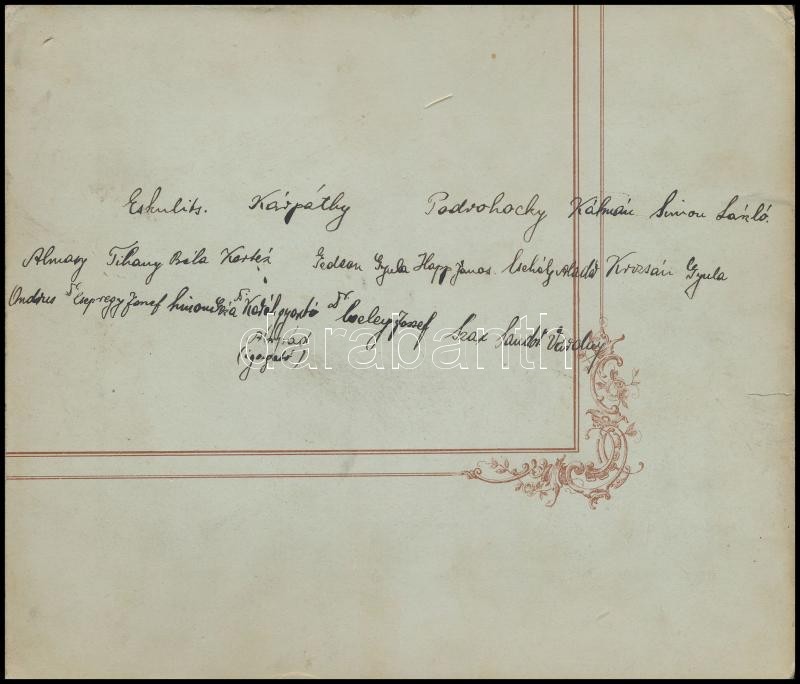 Eskulits. Kárpáthy Podrohocky Kálmán Simon László.
Almasy Tihany Béla Kertéz Gedeon Gyula Happ János. Csehály Aladár Krizsán Gyula
Ondrus Dr Csepregy Jozsef Simon Géza Dr Kotál gyártó Dr Cseley József Szax Sándor Várday
(igazgató)
darabanth